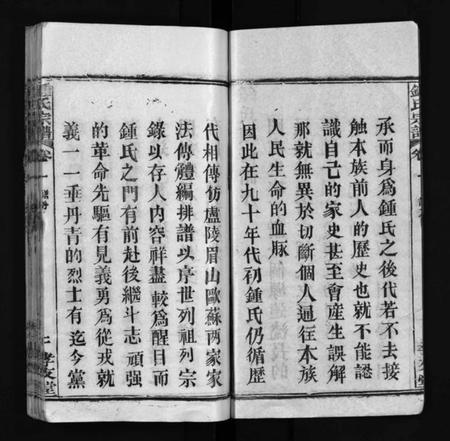 鍾氏宗譜
卷一
承而身爲鍾氏之後代若不去接
觸本族前人的歷史也就不能認
識自己的家史甚至會産生誤解
那就無異於切斷個人過往本族
人民生命的血脉
因此在九十年代初鍾氏仍循歷
代相傳仿廬陵眉山歐蘇兩家家
法傳體編排譜以序世列祖列宗
錄以存人内容祥盡較爲醒目而
鍾氏之門有前赴後繼斗志頑强
的革命先驅有見義勇爲從戎就
義一一垂丹青的烈士有迄今黨
鍾氏宗譜
卷一
孝友堂